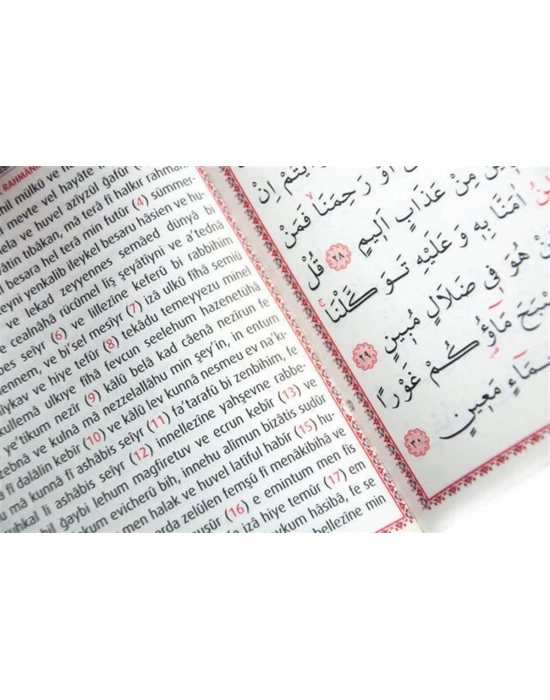 RAHMANİ
mil mülkü ve
meyte vel hayâte
ela ve huvel azîyzul ğafûr
âtin tıbâkan, mâ terâ fî halkır rahmân
l besara hel terâ min futûr (4) sümmer-
eyni yenkalib ileykel besaru hâsien ve hu-
ve lekad zeyyennes semâed dünyâ bi
e cealnâhâ rücûmel liş şeyâtîyni ve a'tednâ
bes seîyr (6) ve lillezîne keferû bi rabbihim
ennem, ve bi'sel mesîyr (7) izâ ulkû fîhâ semiû
îykav ve hiye tefûr (8) tekâdu temeyyezu minel
küllemâ ulkıye fîhâ fevcun seelehum hazenetühâ
e'tikum nezîr (9) kâlû belâ kad câenâ nezîrun fe
zebnâ ve kulnâ mâ nezzelallâhu min şey'in, in entum
â fî dalâlin kebîr (10) ve kâlû lev kunnâ nesmeu ev na'k-
u mâ kunnâ fî ashâbis seîyr (11) fa'tarafû bi zenbihim, fe
uhkal li ashâbis seîyr (12) innellezîne yahşevne rabbe-
bil ğaybi lehum mağfiretuv ve ecrun kebîr (13) ve
kum evicherû bih, innehu alîmun bizâtis sudûr
men halak ve huvel latîful habîr (15) hu-
arda zelûlen femşû fî menâkibihâ ve
uşûr (16) e emintum men fis
izâ hiye temûr (17) em
ykum hâsibâ, fe se
bellezîne min
يْتُمْ اِنْ
اَوْ رَحِمَنَا فَمَنْ
مِنْ عَذَابٍ اَلِيمٍ ٢٨ قُلْ
اٰمَنَّا بِهِ وَعَلَيْهِ تَوَكَّلْنَا
هُوَ فِي ضَلَالٍ مُبِينٍ ٢٩
مَاؤُكُمْ غَوْرًا
مَاءٍ مَعِينٍ ٣٠